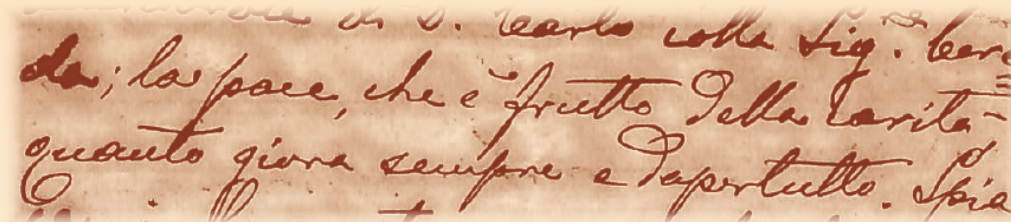 di S. Carlo colla Sig.
da; la pace, che è frutto della Carità
quanto giova sempre e dapertutto. Spia